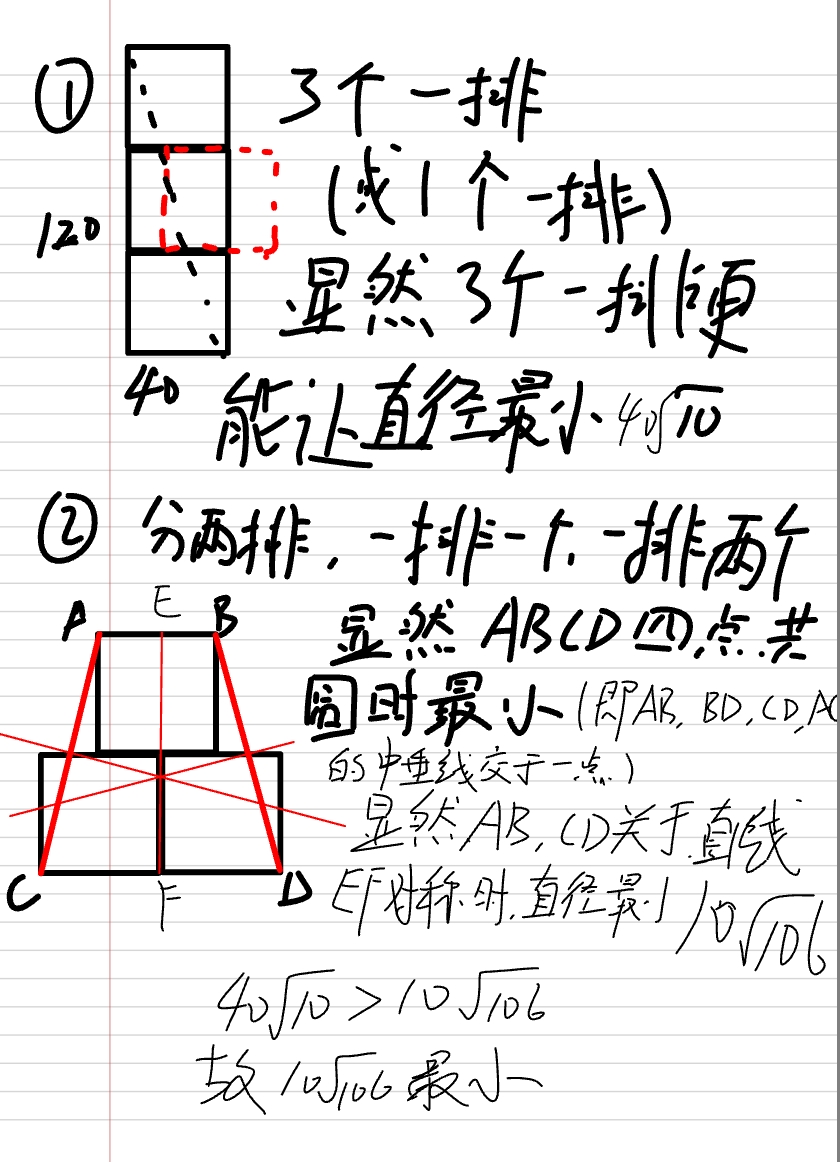 ① 3个一排
(或1个一排)
120
显然3个一排更
40
能让直径最小40√10
② 分两排,一排一个,一排两个
A E B
显然ABCD四点共
圆时最小(即AB,BD,CD,AC
的中垂线交于一点)
显然AB,CD关于直线
C F D
EF对称时,直径最小10√106
40√10>10√106
故10√106最小